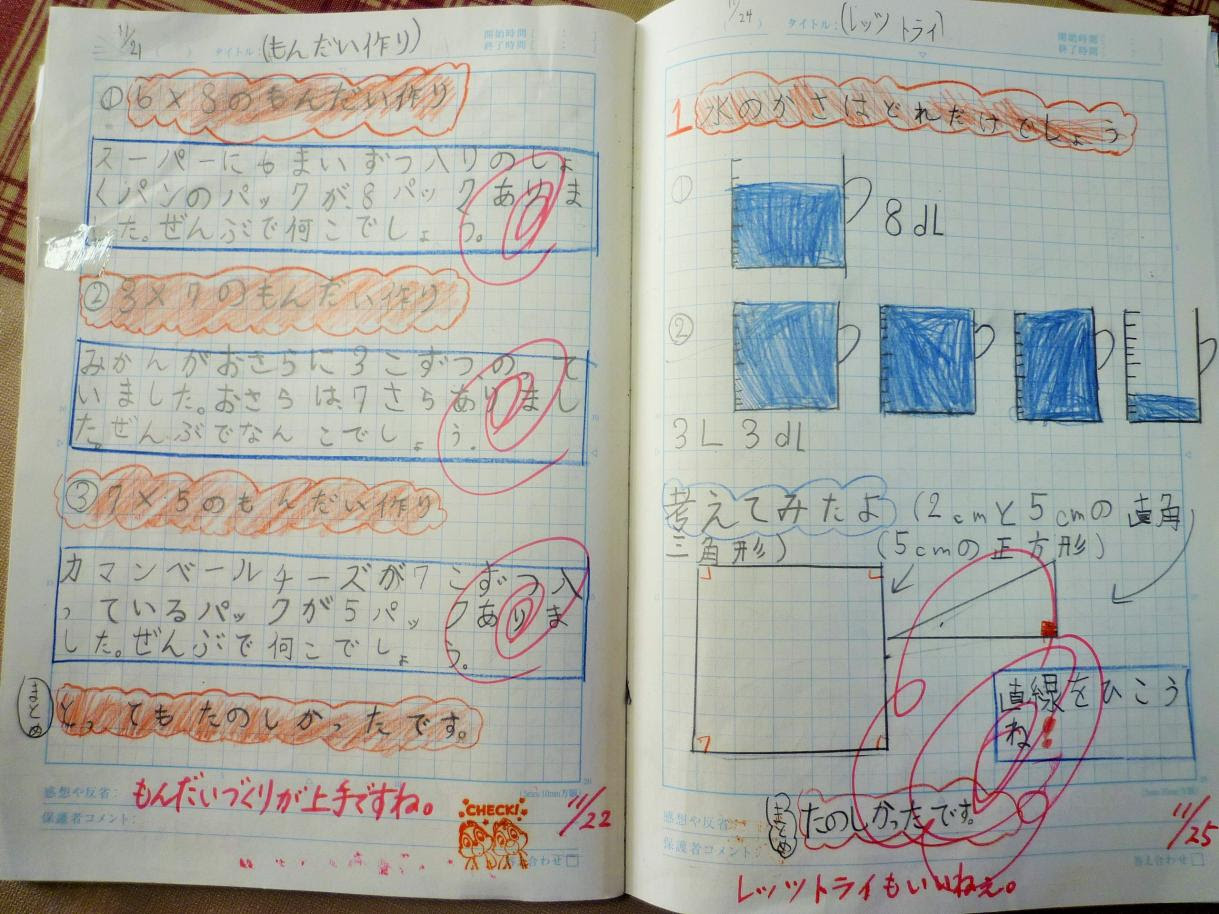 11/21
タイトル:(もんだい作り)
開始時間
終了時間
① 6×8のもんだい作り
スーパーに6まいずつ入りのしょ
くパンのパックが、8パックありま
した。ぜんぶで何こでしょう。
② 3×7のもんだい作り
みかんがおさらに3こずつのって
いました。おさらは、7さらありまし
た。ぜんぶでなんこでしょう。
③ 7×5のもんだい作り
カマンベールチーズが7こずつ入
っているパックが5パックありま
した。ぜんぶで何こでしょう。
まとめ
とってもたのしかったです。
感想や反省:
もんだいづくりが上手ですね。
保護者コメント:
CHECK!
11/22
(5mm・10mm方眼)
答え合わせ
11/24
タイトル:(レッツトライ)
開始時間
終了時間
1 水のかさはどれだけでしょう
① 8dL
②
3L3dL
考えてみたよ (2cmと5cmの直角
三角形) (5cmの正方形)
直線をひこう
ね!
まとめ
たのしかったです。
感想や反省:
保護者コメント:
11/25
答え合わせ
レッツトライもいいねぇ。